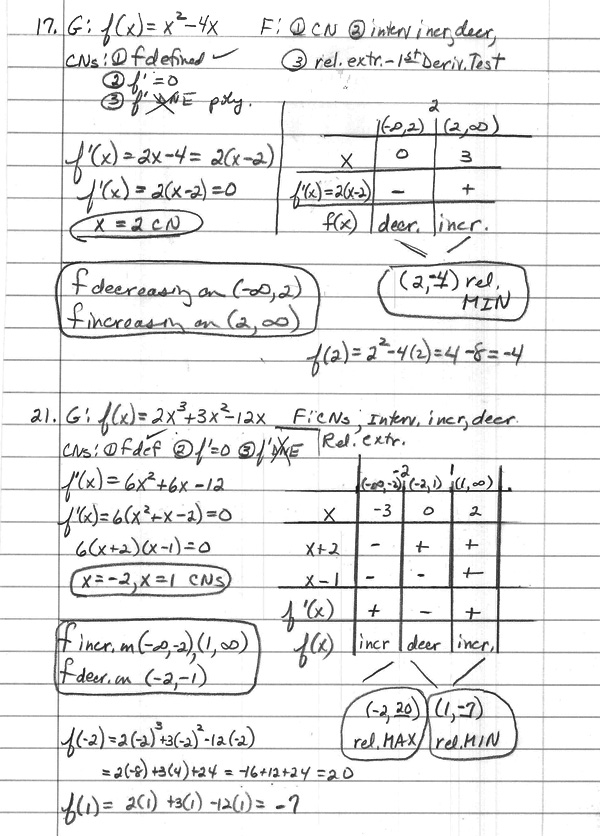 17. G: f(x) = x² - 4x F: ① CN ② interv incr, decr,
CNs: ① f defined ✓ ③ rel. extr. - 1st Deriv. Test
② f' = 0
③ f' DNE poly.
2
(-∞,2) (2,∞)
f'(x) = 2x - 4 = 2(x-2) x 0 3
f'(x) = 2(x-2) = 0 f'(x) = 2(x-2) - +
x = 2 CN f(x) decr. incr.
f decreasing on (-∞, 2) (2, -4) rel.
f increasing on (2, ∞) MIN
f(2) = 2² - 4(2) = 4 - 8 = -4
21. G: f(x) = 2x³ + 3x² - 12x F: CNs, Interv. incr, decr.
CNs: ① f def ✓ ② f' = 0 ③ f' DNE Rel. extr.
-2 1
f'(x) = 6x² + 6x - 12 (-∞,-2) (-2,1) (1,∞)
f'(x) = 6(x² + x - 2) = 0 x -3 0 2
6(x+2)(x-1) = 0 x+2 - + +
x = -2, x = 1 CNs x-1 - - +
f'(x) + - +
f incr. on (-∞,-2), (1, ∞) f(x) incr decr incr.
f decr. on (-2, -1)
(-2, 20) (1, -7)
f(-2) = 2(-2)³ + 3(-2)² - 12(-2) rel. MAX rel. MIN
= 2(-8) + 3(4) + 24 = -16 + 12 + 24 = 20
f(1) = 2(1) + 3(1) - 12(1) = -7